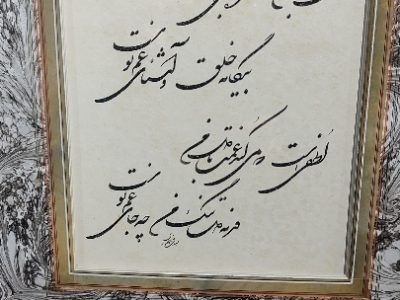 بیگانه خلق و آشنای غم توست
لطفی است که می کند غمت با دل من
ورنه دل تنگ من چه جای غم توست